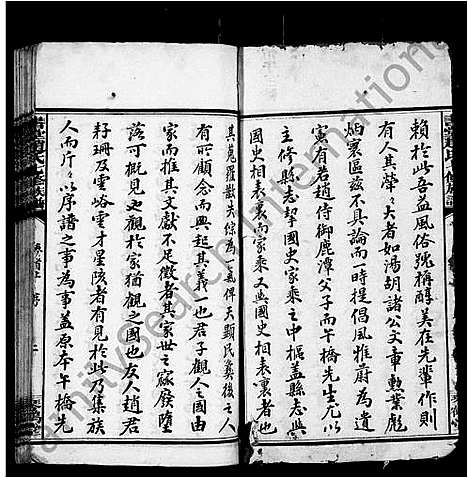 賴於此吾益風俗號稱醇美在先輩作則
有人其犖々大者如湯胡諸公文章勲業彪
炳寰區兹不具論而一時提倡風雅蔚為遺
賓有若趙侍御鹿潭父子而午橋先生尤以
主修縣志挈國史家乘之中樞蓋縣志與
國史相表裏而家乘又與國史相表裏者也
其蒐羅散失綜為一氣俾天顯民彝後之人
有所顧念而興起其義一也君子觀人之國由
家而推其文獻不足徵者其家世之寥廢墮
落可概見也觀於家猶觀之國也友人趙君
籽珊及雲峪雲才星陔者有見於此乃集族
人而斤々以序譜之事為事蓋原本午橋先
FamilySearch International